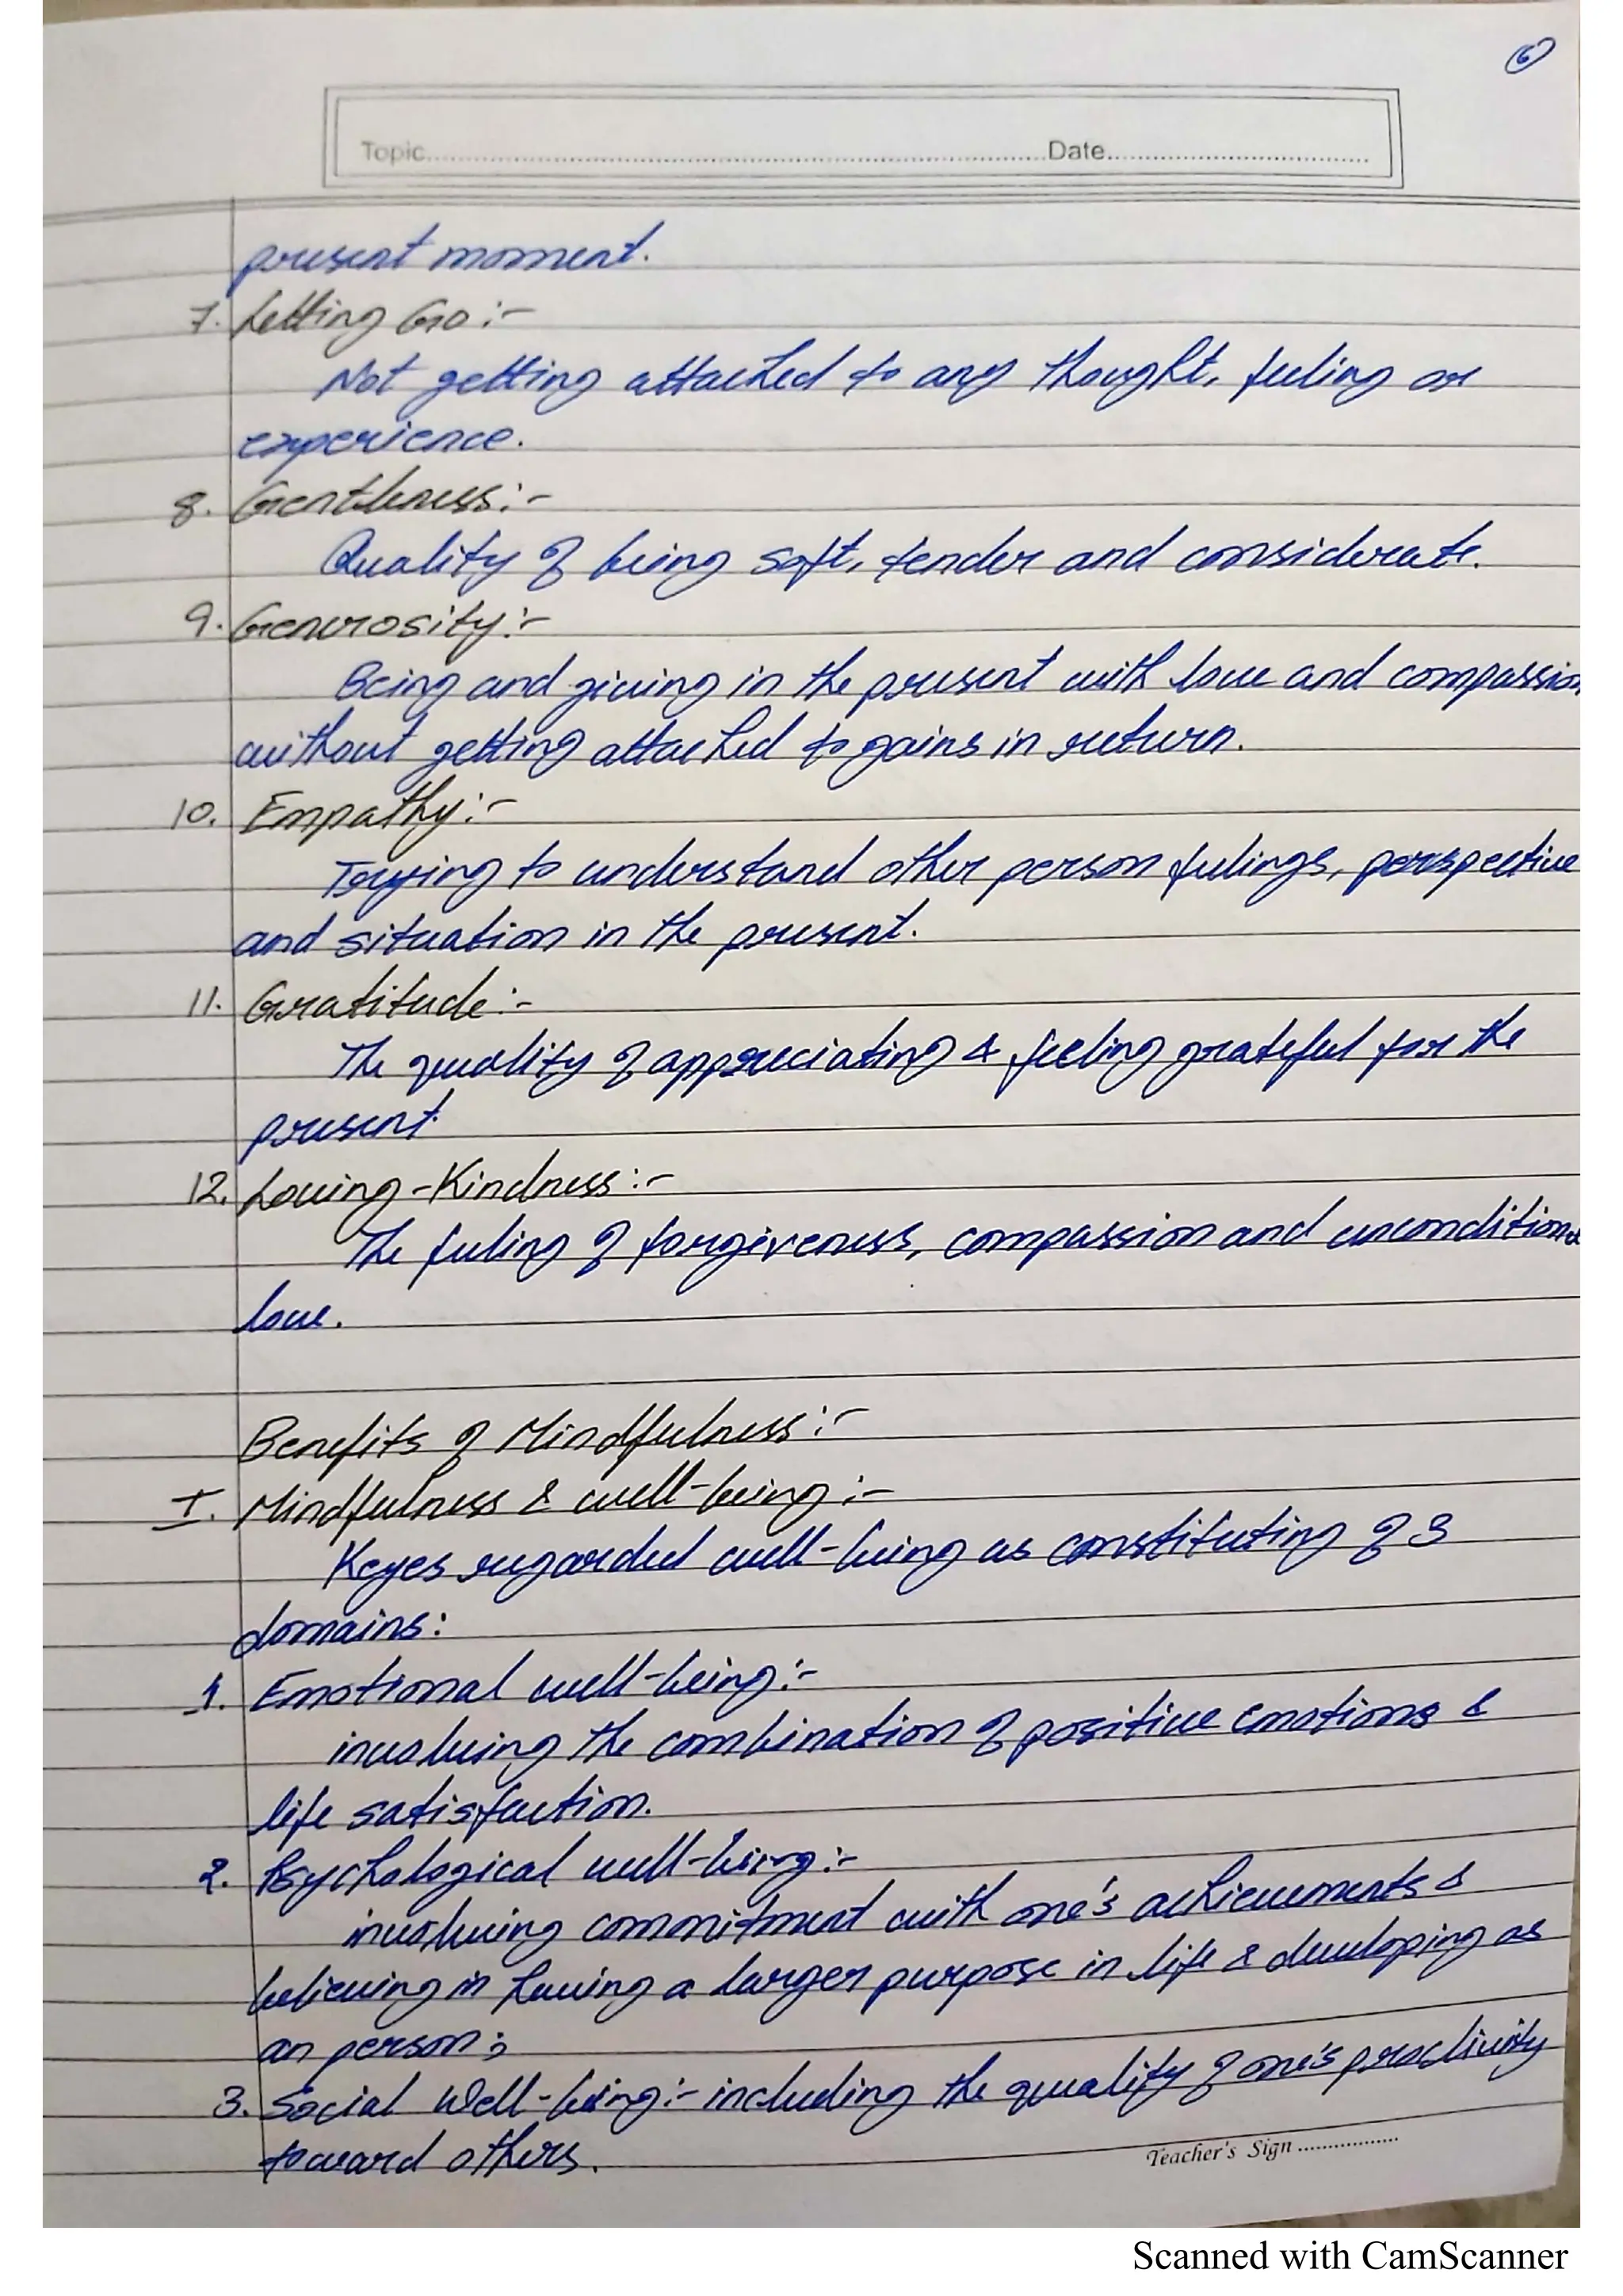 6
Topic Date
present moment.
7. Letting Go :-
Not getting attached to any thought, feeling or
experience.
8. Gentleness :-
Quality of being soft, tender and considerate.
9. Generosity :-
Being and giving in the present with love and compassion
without getting attached to gains in return.
10. Empathy :-
Trying to understand other person feelings, perspective
and situation in the present.
11. Gratitude :-
The quality of appreciating & feeling grateful for the
present.
12. Loving-Kindness :-
The feeling of forgiveness, compassion and unconditiona
love.
Benefits of Mindfulness :-
I. Mindfulness & well-being :-
Keyes regarded well-being as constituting of 3
domains :
1. Emotional well-being :-
involving the combination of positive emotions &
life satisfaction.
2. Psychological well-being :-
involving commitment with one's achievements &
believing in having a larger purpose in life & developing as
an person ;
3. Social Well-being :- including the quality of one's proclivity
toward others.
Teacher's Sign
Scanned with CamScanner